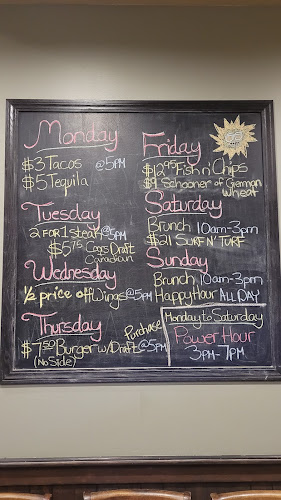 Monday
$3 Tacos @5PM
$5 Tequila
Tuesday
2 FOR 1 steak @5PM
$5.75 Coors Draft
Canadian
Wednesday
1/2 price off Wings @5PM
Thursday
Purchase
$7.50 Burger w/Draft @5PM
(No Side)
Friday
$12.95 Fish n' Chips
$9 Schooner of German
Wheat
Saturday
Brunch 10am-3pm
$21 SURF N' TURF
Sunday
Brunch 10am-3pm
Happy Hour ALL DAY
Monday to Saturday
Power Hour
3PM-7PM